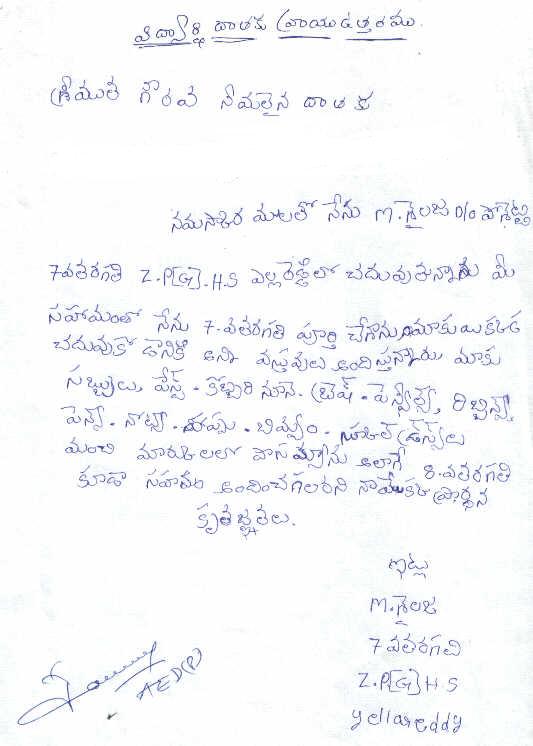 విద్యార్థి దాతకు వ్రాయు ఉత్తరము.
శ్రీముతి గౌరవ నీమలైన దాతకు
నమస్కార మలతో నేను M.శైలజ D/o పోశెట్టి
7వతరగతి Z.P[G].H.S ఎల్లారెడ్డిలో చదువుతున్నాను మీ
సహామంతో నేను 7.వతరగతి పూర్తి చేశాను. మాకు ఇక్కడ
చదువుకో డానికి అన్ని వస్తువులు అందిస్తన్నారు. మాకు
సబ్బులు, పేస్ట్. కొబ్బరి నూనె. బ్రెష్. పెన్సిల్స్, రిబ్బన్స్,
పెన్స్. నోట్సు. దుప్పు. బియ్యం. స్కూల్ డ్రెస్స్‌లు
మంచి మార్కులలో పాసమ్యాను అలాగే 8.వతరగతి
కూడా సహయం అందించగలరని నా యొక్క ప్రార్థన
కృతజ్ఞతలు.
ఇట్లు
M.శైలజ
7వతరగతి
Z.P[G]H S
yellareddy
AED(P)